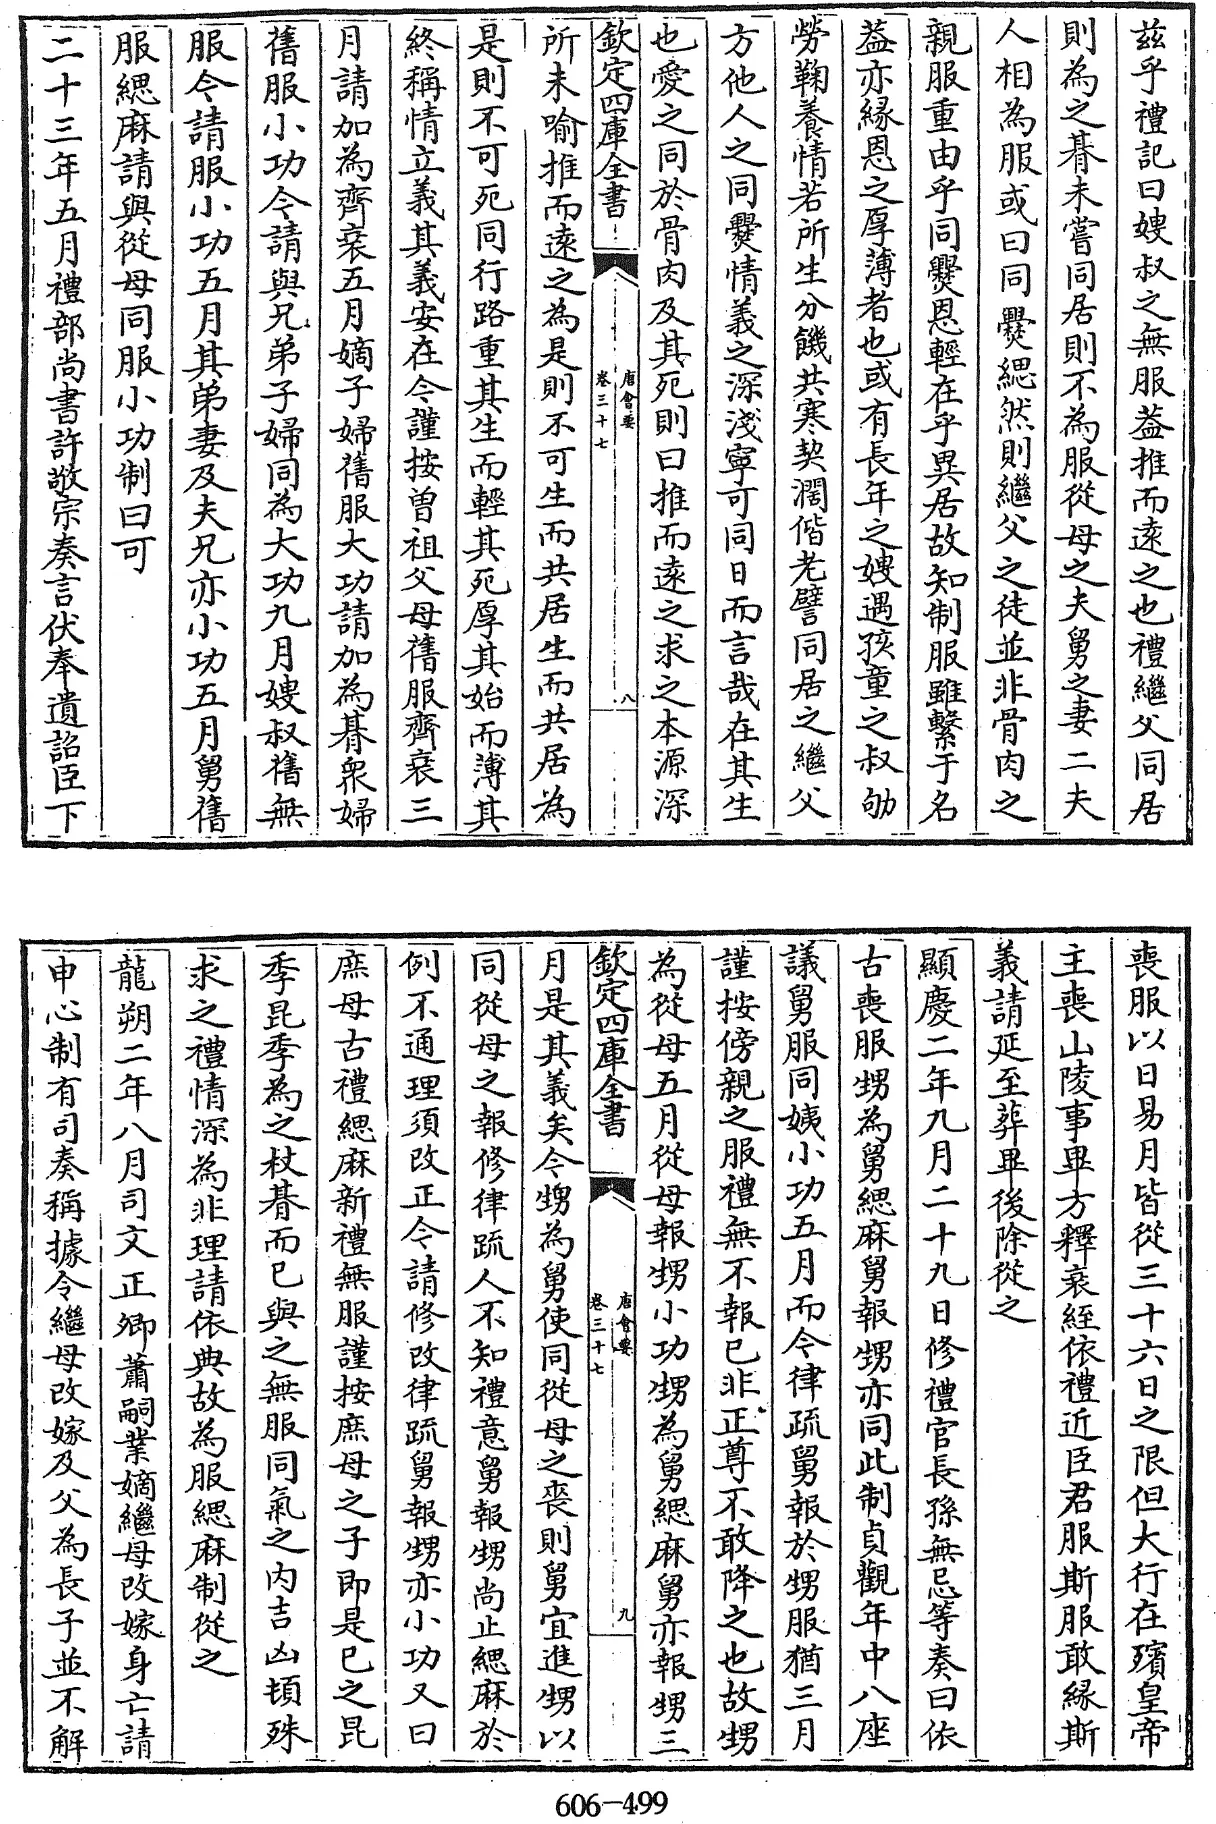 茲乎禮記曰嫂叔之無服葢推而逺之也禮繼父同居
則為之朞未嘗同居則不為服從母之夫舅之妻二夫
人相為服或曰同爨緦然則繼父之徒並非骨肉之
親服重由乎同爨恩輕在乎異居故知制服雖繫于名
葢亦緣恩之厚薄者也或有長年之嫂遇孩童之叔劬
勞鞠養情若所生分饑共寒契濶偕老譬同居之繼父
方他人之同爨情義之深淺寧可同日而言哉在其生
也愛之同於骨肉及其死則曰推而逺之求之本源深
欽定四庫全書
唐會要
卷三十七
八
所未喻推而逺之為是則不可生而共居生而共居為
是則不可死同行路重其生而輕其死厚其始而薄其
終稱情立義其義安在今謹按曾祖父母舊服齊衰三
月請加為齊衰五月嫡子婦舊服大功請加為朞衆婦
舊服小功今請與兄弟子婦同為大功九月嫂叔舊無
服今請服小功五月其弟妻及夫兄亦小功五月舅舊
服緦麻請與從母同服小功制曰可
二十三年五月禮部尚書許敬宗奏言伏奉遺詔臣下
喪服以日易月皆從三十六日之限但大行在殯皇帝
主喪山陵事畢方釋衰絰依禮近臣君服斯服敢緣斯
義請延至葬畢後除從之
顯慶二年九月二十九日修禮官長孫無忌等奏曰依
古喪服甥為舅緦麻舅報甥亦同此制貞觀年中八座
議舅服同姨小功五月而今律疏舅報於甥服猶三月
謹按傍親之服禮無不報已非正尊不敢降之也故甥
為從母五月從母報甥小功甥為舅緦麻舅亦報甥三
欽定四庫全書
唐會要
卷三十七
九
月是其義矣今甥為舅使同從母之喪則舅宜進甥以
同從母之報修律疏人不知禮意舅報甥尚止緦麻於
例不通理須改正今請修改律疏舅報甥亦小功又曰
庶母古禮緦麻新禮無服謹按庶母之子即是已之昆
季昆季為之杖朞而已與之無服同氣之內吉凶頓殊
求之禮情深為非理請依典故為服緦麻制從之
龍朔二年八月司文正卿蕭嗣業嫡繼母改嫁身亡請
申心制有司奏稱據令繼母改嫁及父為長子並不解
606-499